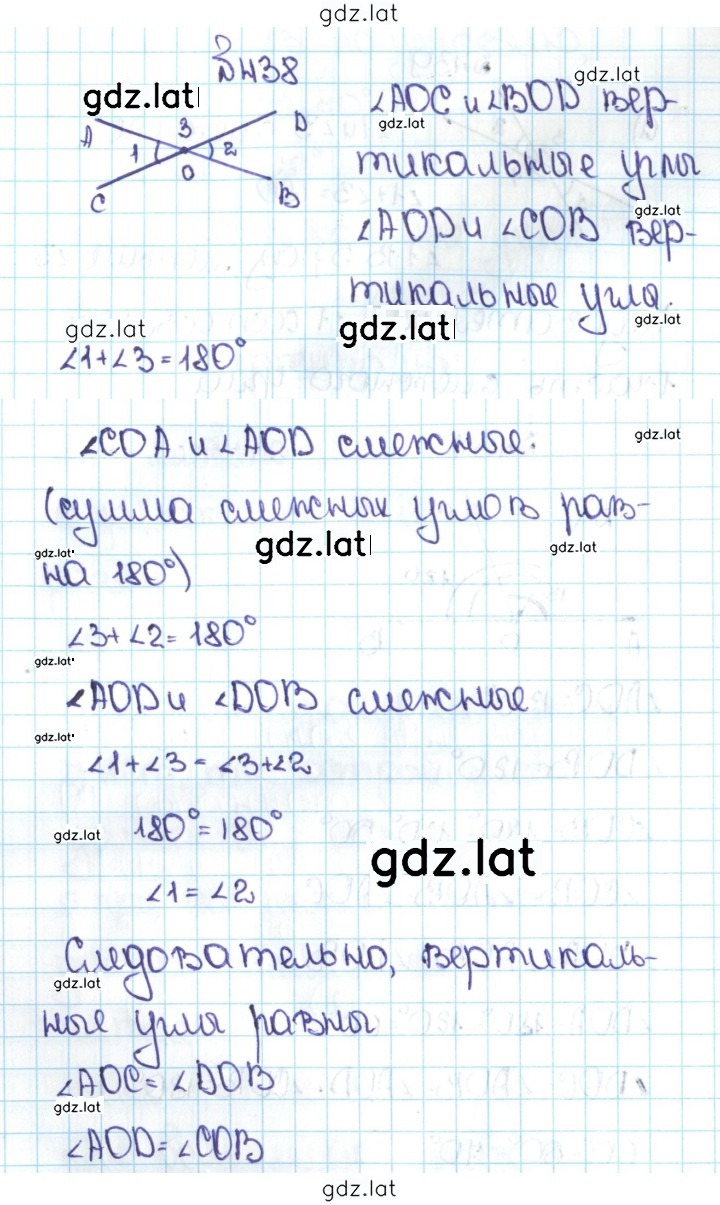 gdz.lat
№438
gdz.lat
gdz.lat
A
3
D
1
2
O
C
B
∠AOC и ∠BOD вер-
gdz.lat
тикальные углы
gdz.lat
∠AOD и ∠COB вер-
тикальные угла.
gdz.lat
gdz.lat
gdz.lat
∠1+∠3=180°
∠COA и ∠AOD смежные.
gdz.lat
(сумма смежных углов рав-
gdz.lat
gdz.lat
gdz.lat
на 180°)
∠3+∠2=180°
gdz.lat
∠AOD и ∠DOB смежные
gdz.lat
∠1+∠3=∠3+∠2
180°=180°
gdz.lat
gdz.lat
∠1=∠2
Следовательно, вертикаль-
gdz.lat
ные углы равны
∠AOC=∠DOB
gdz.lat
∠AOD=∠COB
gdz.lat